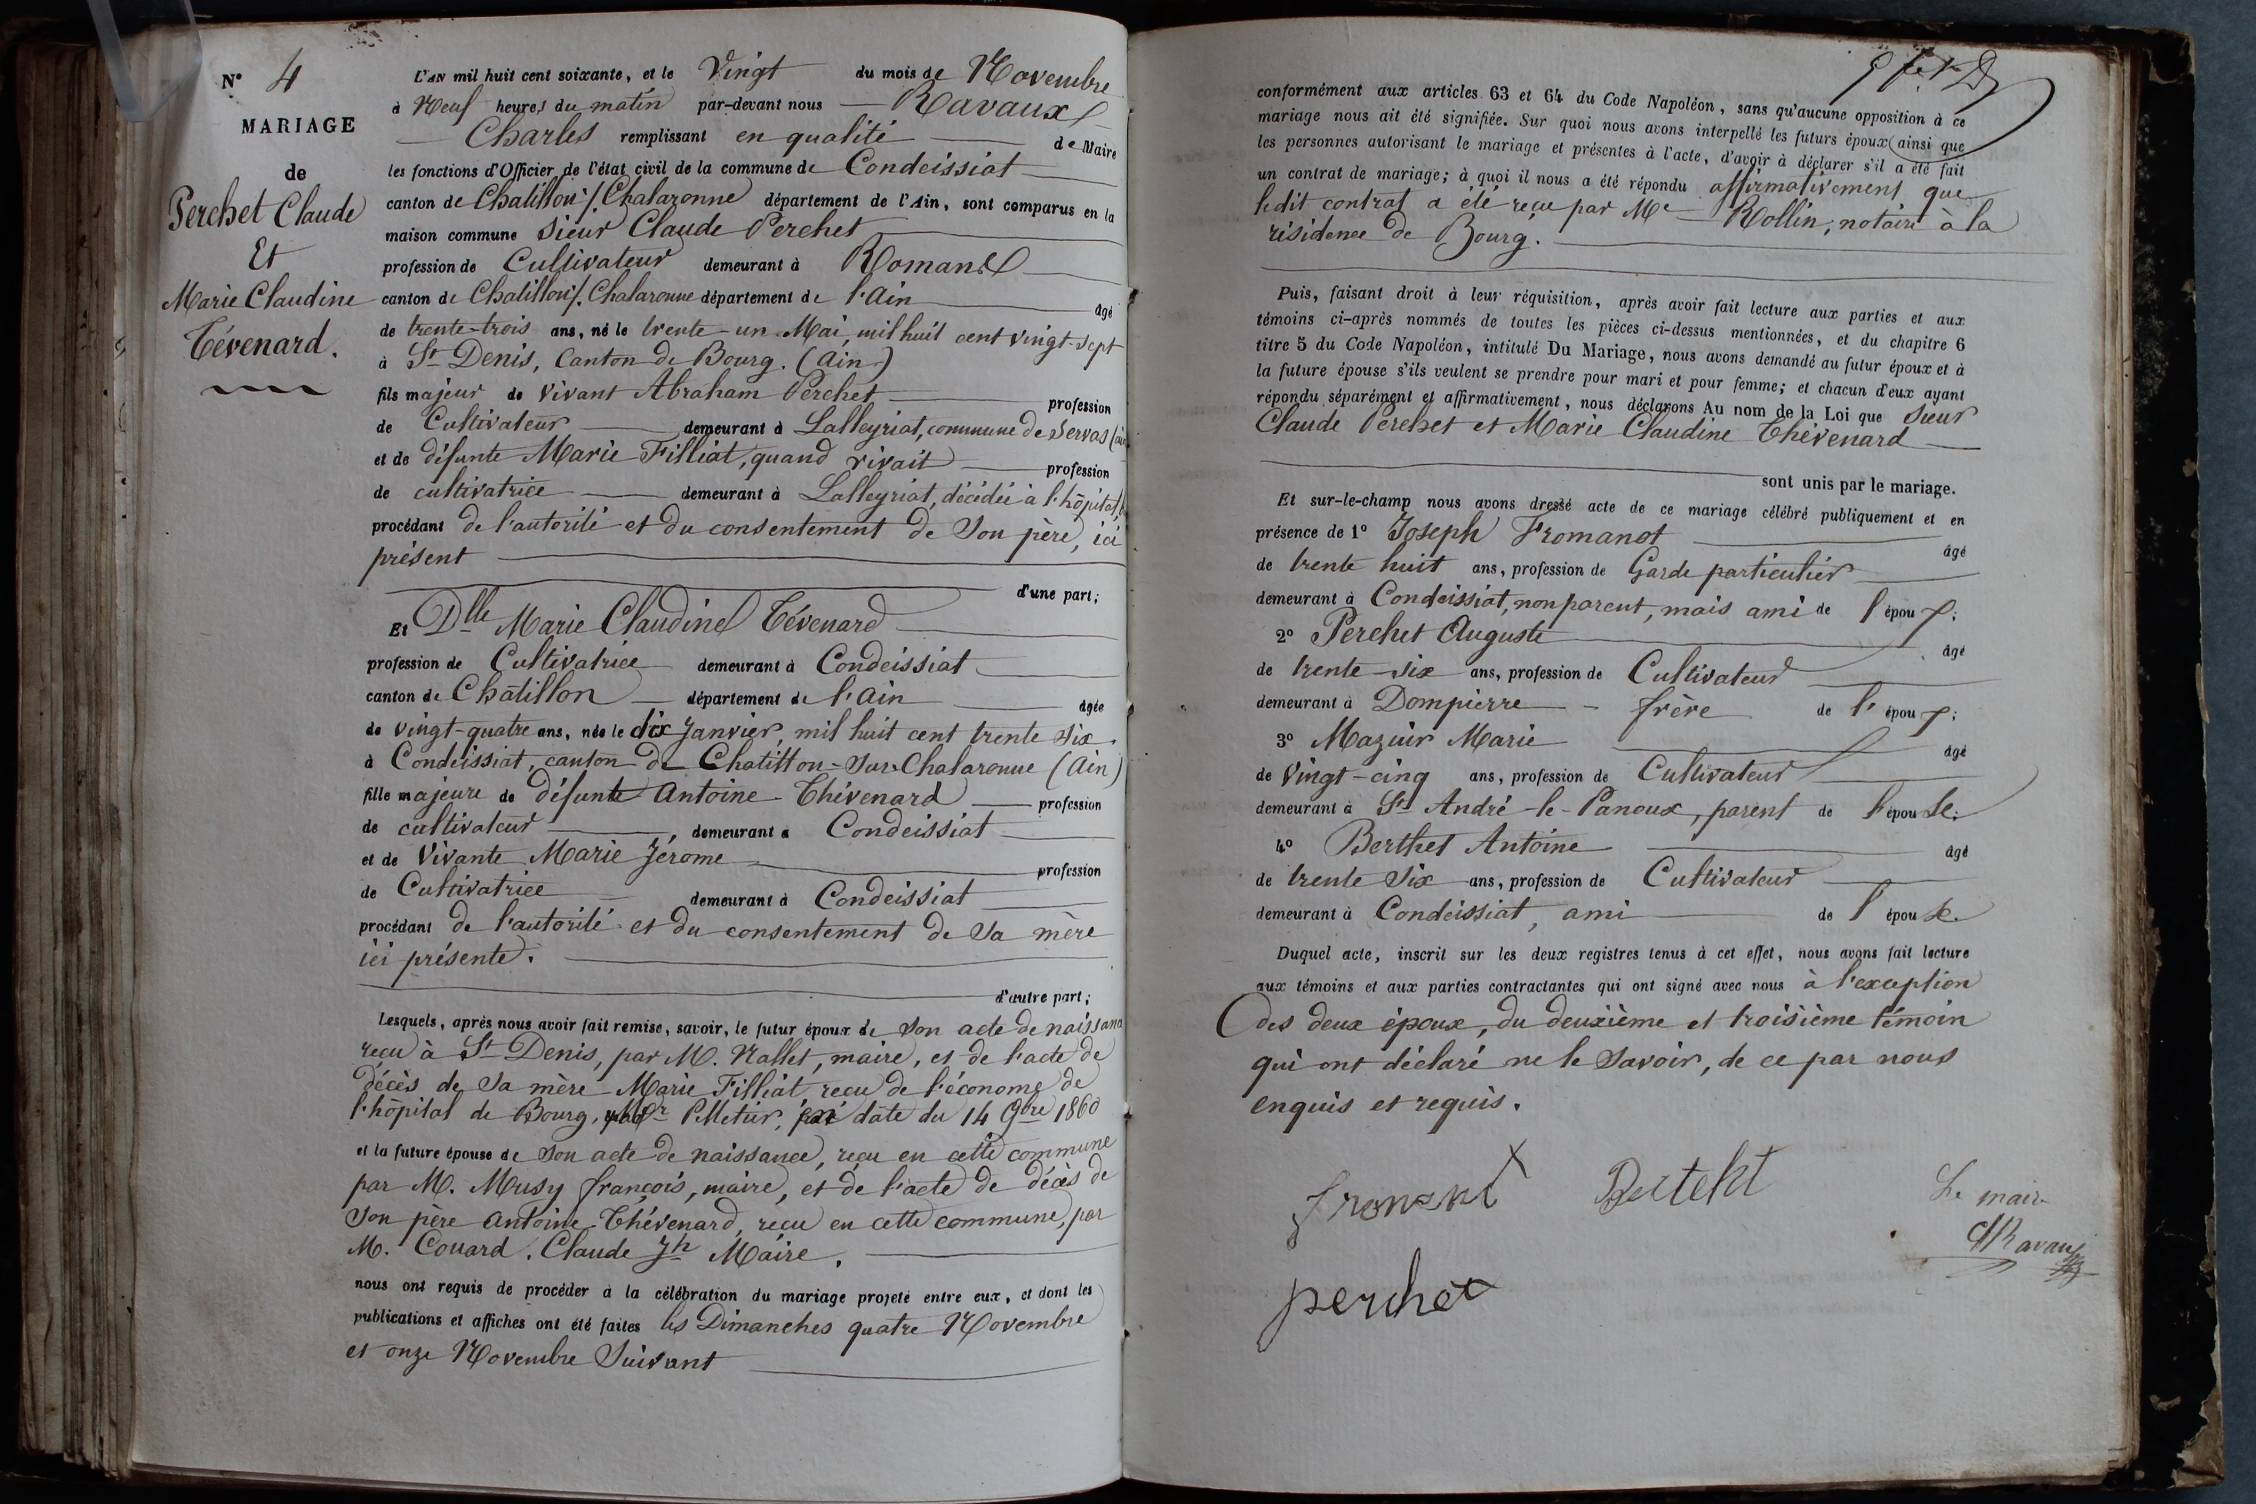 N° 4
MARIAGE
de
Perchet Claude
Et
Marie Claudine
Tévenard.
L'AN mil huit cent soixante, et le Vingt du mois de Novembre
à Neuf heures du matin par-devant nous Ravaux
Charles remplissant en qualité de Maire
les fonctions d'Officier de l'état civil de la commune de Condeissiat
canton de Chatillon s/ Chalaronne département de l'Ain, sont comparus en la
maison commune Sieur Claude Perchet
profession de Cultivateur demeurant à Romans
canton de Chatillon s/. Chalaronne département de l'Ain âgé
de trente-trois ans, né le trente-un Mai, mil huit cent vingt-sept
à St Denis, Canton de Bourg. (Ain)
fils majeur de vivant Abraham Perchet profession
de Cultivateur demeurant à Lalleyriat, commune de Servas (Ain
et de défunte Marie Filliat, quand vivait profession
de cultivatrice demeurant à Lalleyriat, décédée à l'hôpital,
procédant de l'autorité et du consentement de Son père, ici
présent
d'une part;
Et Dlle Marie Claudine Tévenard
profession de Cultivatrice demeurant à Condeissiat
canton de Châtillon département de l'Ain âgée
de vingt-quatre ans, née le dix Janvier, mil huit cent trente six
à Condeissiat, canton de Chatillon-Sur-Chalaronne (Ain)
fille majeure de défunt Antoine Thévenard profession
de cultivateur, demeurant à Condeissiat
et de Vivante Marie Jérome profession
de Cultivatrice demeurant à Condeissiat
procédant de l'autorité et du consentement de Sa mère
ici présente.
d'autre part;
Lesquels, après nous avoir fait remise, savoir, le futur époux de Son acte de naissance
reçu à St Denis, par M. Nallet, maire, et de l'acte de
décès de Sa mère Marie Filliat reçu de l'économe de
l'hôpital de Bourg, Mr Pelletier, date du 14 9bre 1860
et la future épouse de Son acte de naissance, reçu en cette commune
par M. Musy françois, maire, et de l'acte de décès de
Son père Antoine Thévenard, reçu en cette commune, par
M. Couard. Claude Jh Maire.
nous ont requis de procéder à la célébration du mariage projeté entre eux, et dont les
publications et affiches ont été faites les Dimanches quatre Novembre
et onze Novembre Suivant
conformément aux articles 63 et 64 du Code Napoléon, sans qu'aucune opposition à ce
mariage nous ait été signifiée. Sur quoi nous avons interpellé les futurs époux (ainsi que
les personnes autorisant le mariage et présentes à l'acte, d'avoir à déclarer s'il a été fait
un contrat de mariage; à quoi il nous a été répondu affirmativement que
ledit contrat a été reçu par Me Rollin, notaire à la
résidence de Bourg.
Puis, faisant droit à leur réquisition, après avoir fait lecture aux parties et aux
témoins ci-après nommés de toutes les pièces ci-dessus mentionnées, et du chapitre 6
titre 5 du Code Napoléon, intitulé Du Mariage, nous avons demandé au futur époux et à
la future épouse s'ils veulent se prendre pour mari et pour femme; et chacun d'eux ayant
répondu séparément et affirmativement, nous déclarons Au nom de la Loi que Sieur
Claude Perchet et Marie Claudine Thévenard
sont unis par le mariage.
Et sur-le-champ nous avons dressé acte de ce mariage célébré publiquement et en
présence de 1° Joseph Fromanot âgé
de trente huit ans, profession de Garde particulier
demeurant à Condeissiat, non parent, mais ami de l'époux;
2° Perchet Auguste âgé
de trente-six ans, profession de Cultivateur
demeurant à Dompierre - frère de l'époux;
3° Mazuir Marie âgé
de Vingt-cinq ans, profession de Cultivateur
demeurant à St André-le-Panoux, parent de l'épouse;
4° Berthet Antoine âgé
de trente Six ans, profession de Cultivateur
demeurant à Condeissiat, ami de l'épouse.
Duquel acte, inscrit sur les deux registres tenus à cet effet, nous avons fait lecture
aux témoins et aux parties contractantes qui ont signé avec nous à l'exception
des deux époux, du deuxième et troisième témoin
qui ont déclaré ne le Savoir, de ce par nous
enquis et requis.
Le maire
Ravaux
perchet